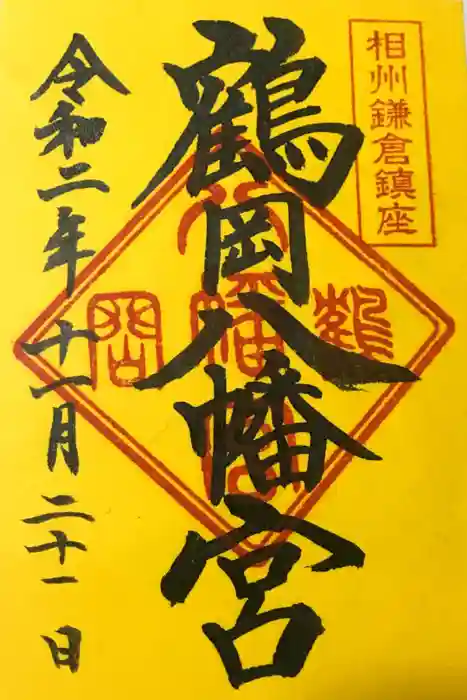 相州鎌倉鎮座
鶴岡八幡宮
令和二年十一月二十一日